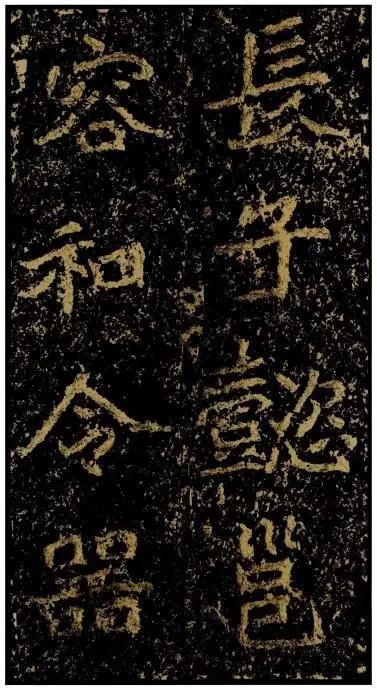 長子懿邕
容和令器